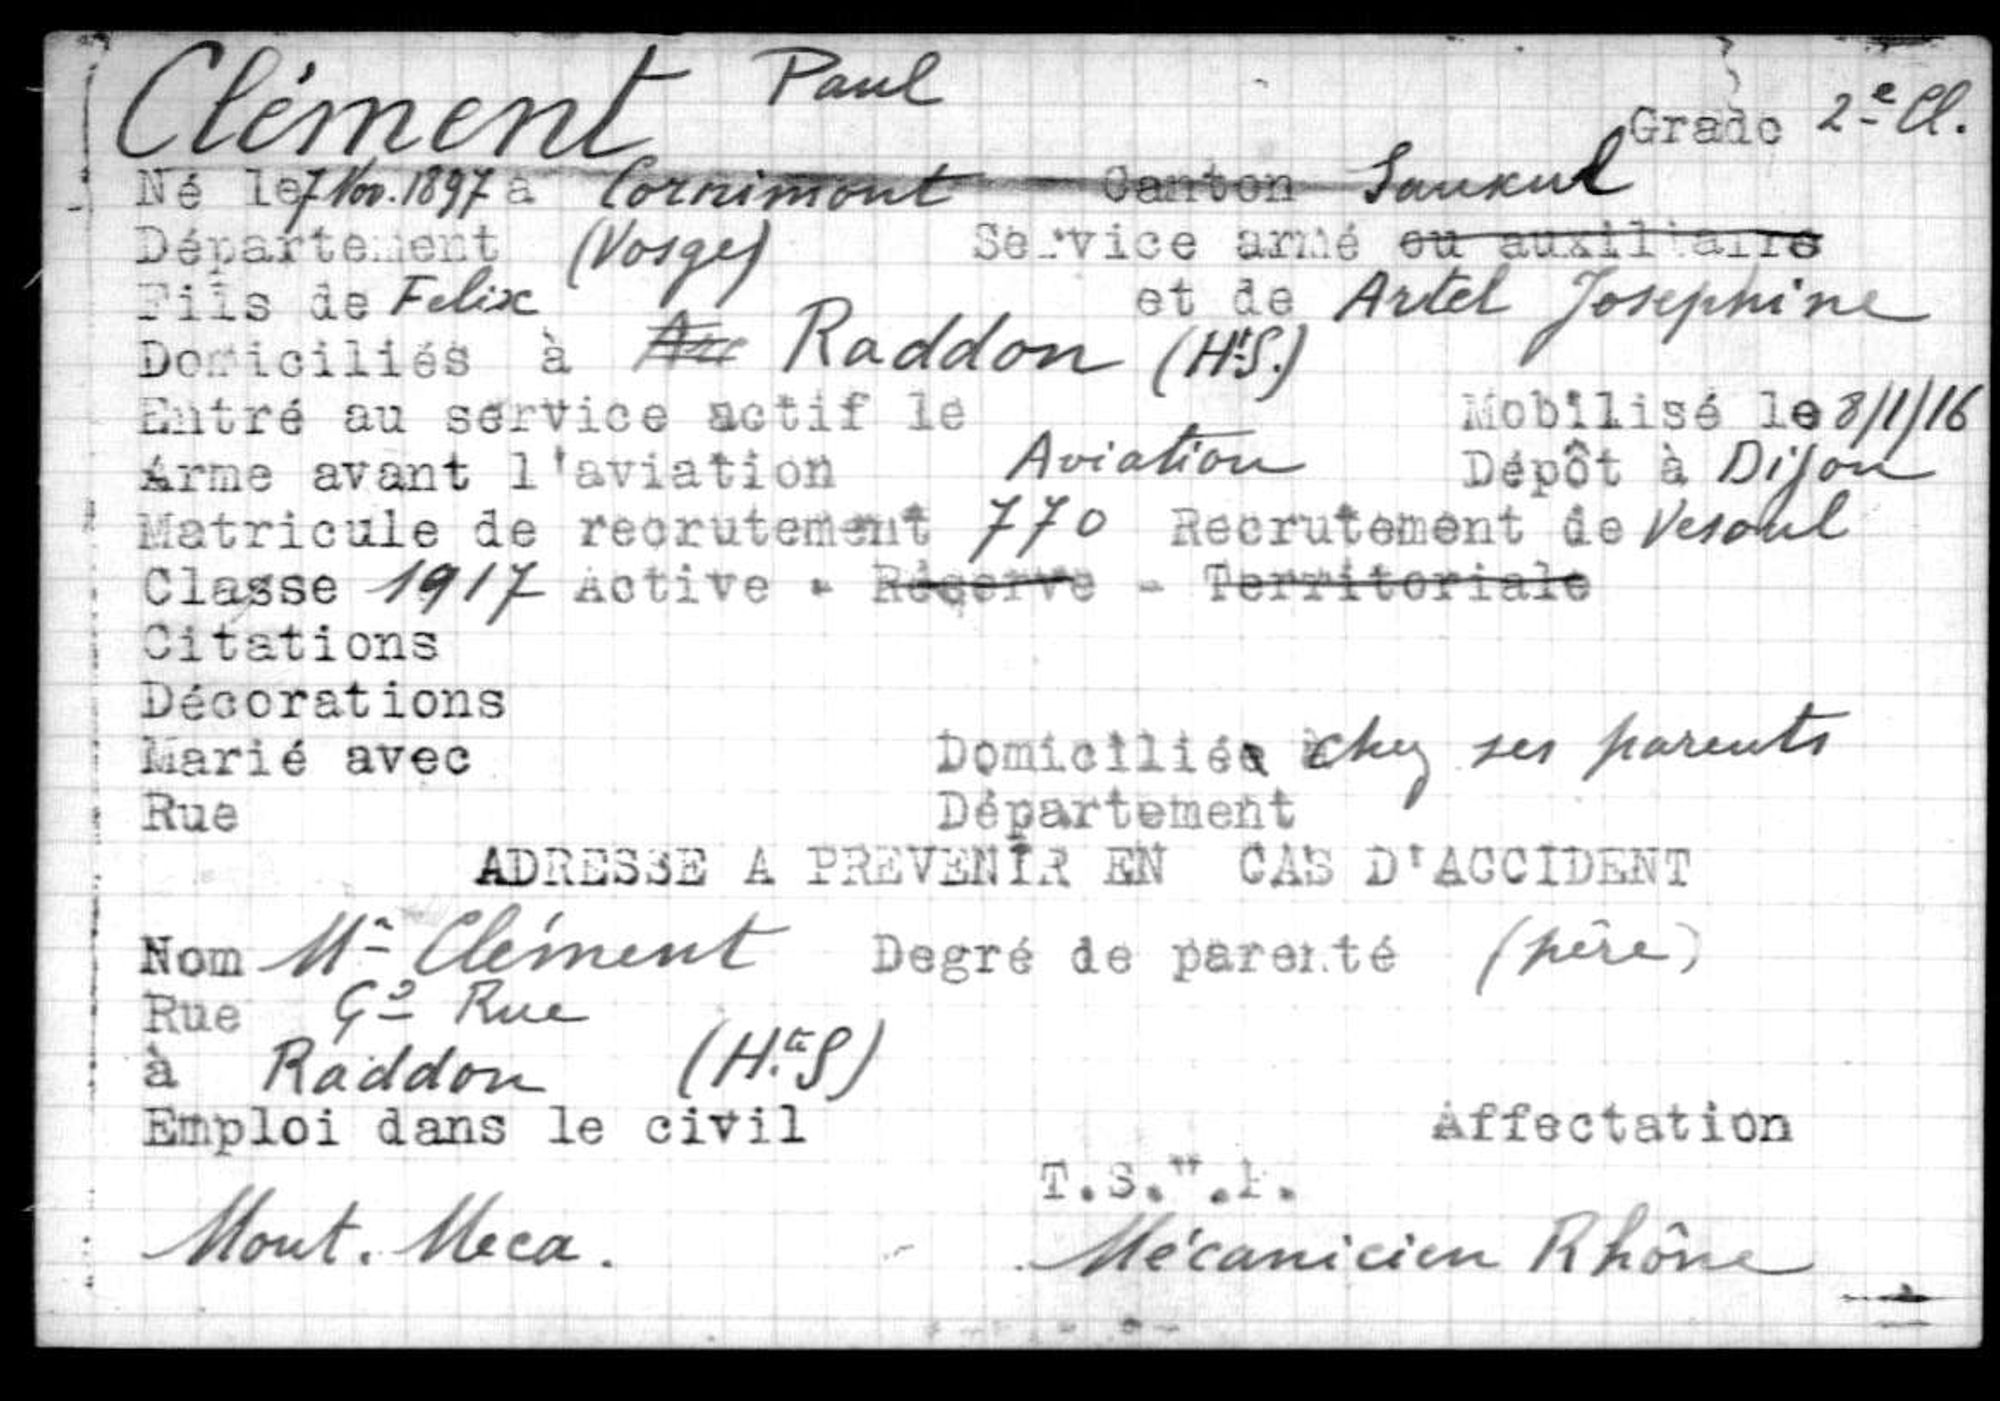 Clément Paul
Grade 2e Cl.
Né le 7 Nov. 1897 à Cornimont Canton
Département (Vosges) Service armé ou auxiliaire
Fils de Felix et de Artel Josephine
Domiciliés à Raddon (Hte S.)
Entré au service actif le Mobilisé le 8/1/16
Arme avant l'aviation Aviation Dépôt à Dijon
Matricule de recrutement 770 Recrutement de Vesoul
Classe 1917 Active - Réserve - Territoriale
Citations
Décorations
Marié avec Domiciliée à chez ses parents
Rue Département
ADRESSE A PREVENIR EN CAS D'ACCIDENT
Nom Mr Clément Degré de parenté (père)
Rue Gde Rue
à Raddon (Hte S)
Emploi dans le civil Affectation
T.S.
Mont. Meca. Mécanicien Rhône